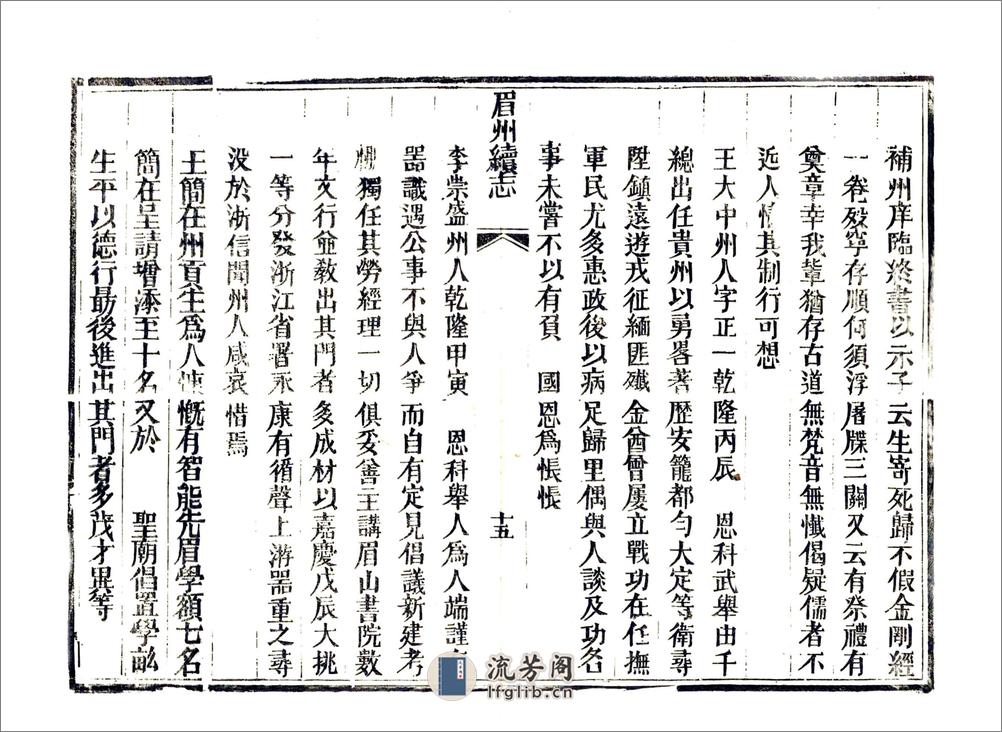 補州庠臨終書以示子云生寄死歸不假金剛經
一卷歿寧存順何須浮屠牒三關又云有祭禮有
奠章幸我輩猶存古道無梵音無懺偈疑儒者不
近人情其制行可想
王大中州人字正一乾隆丙辰 恩科武舉由千
總出任貴州以勇畧著歷安籠都勻大定等衛尋
陞鎮遠遊戎征緬匪殲金酋曾屢立戰功在任撫
軍民尤多惠政後以病足歸里偶與人談及功名
事未嘗不以有負 國恩為悵悵
眉州續志
十五
李崇盛州人乾隆甲寅 恩科舉人為人端謹
器識遇公事不與人爭而自有定見倡議新建考
棚獨任其勞經理一切俱妥善主講眉山書院數
年文行並敎出其門者多成材以嘉慶戊辰大挑
一等分發浙江省署永康有循聲上游器重之尋
没於浙信聞州人咸哀惜焉
王簡在州貢生為人慷慨有智能先眉學額七名
簡在呈請增添至十名又於 聖廟倡置學畝
生平以德行最後進出其門者多茂才異等
流芳阁
lfglib.cn